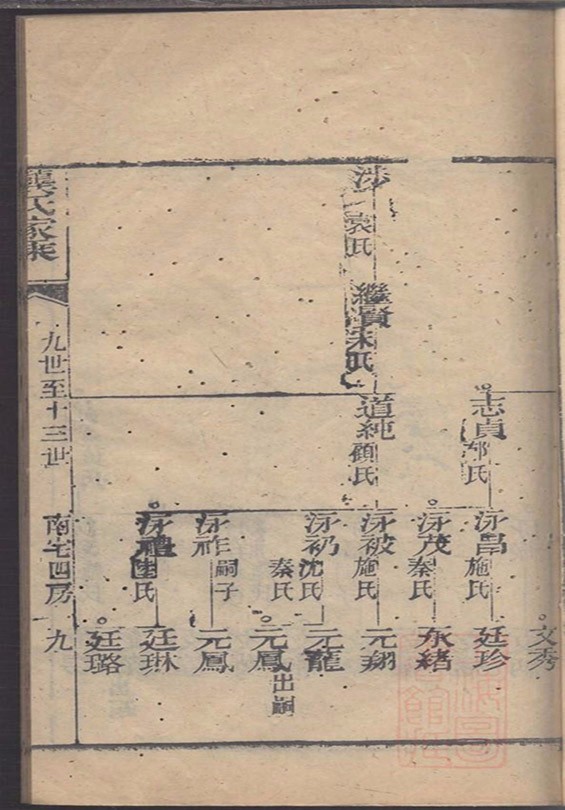 涉 袁氏
繼賢 宋氏
志貞 郁氏
道純 顧氏
泳昌 施氏
泳茂 秦氏
泳被 施氏
泳礽 沈氏 秦氏
泳祚 嗣子
泳禮 氏
文秀
廷珍
永緒
元翔
元龍
元鳳 出嗣
元鳳
廷琳
廷璐
龔氏家乘
九世至十三世
南宅四房
九